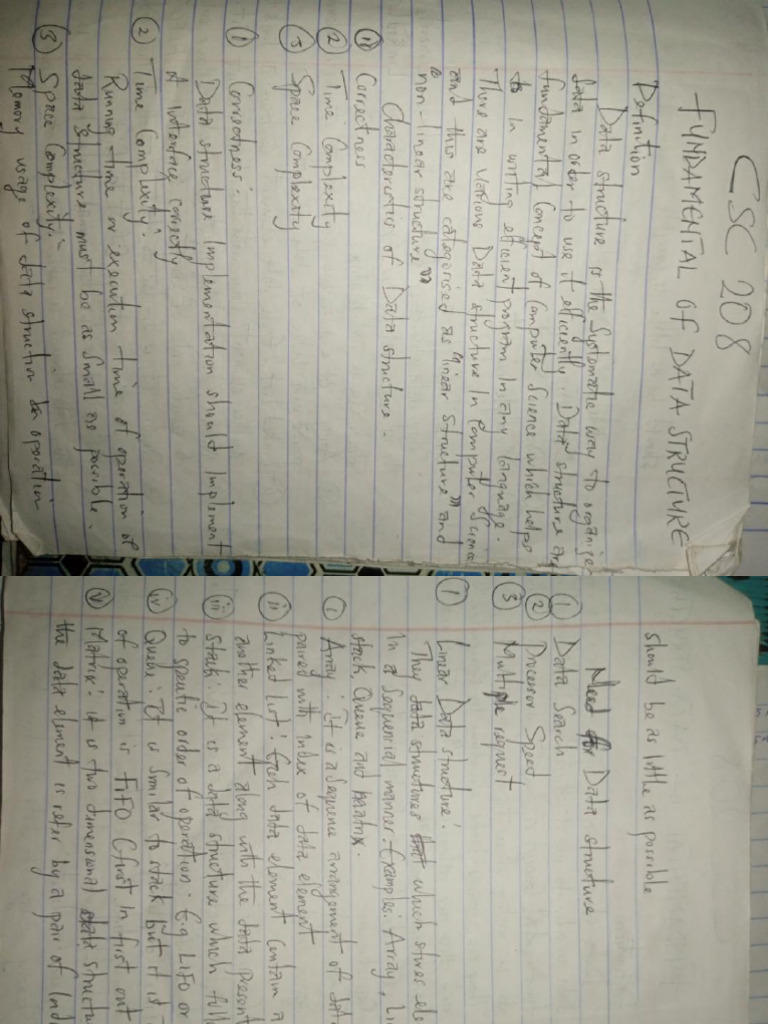 CSC 208
FUNDAMENTAL OF DATA STRUCTURE
Definition
Data structure is the Systematic way to organise
data in order to use it efficiently. Data structure are
fundamental Concept of Computer Science which helps
in writing efficient program in any language.
There are Various Data structure in Computer Science
and this are categorised as "linear structure" and
"non-linear structure"
Characteristics of Data structure.
① Correctness
② Time Complexity
③ Space Complexity
① Correctness:
Data structure implementation should implement
it interface correctly
② Time Complexity:
Running time or execution time of operation of
data structure must be as small as possible.
③ Space Complexity:
Memory usage of data struction operation
should be as little as possible
Need for Data structure
① Data Search
② Processor Speed
③ Multiple request
① Linear Data structure:
They data structures which stores ele
in a Sequential manner. Examples: Array, Li
stack, Queue and Matrix.
(i) Array: It is a Sequence arrangement of dat
paired with index of data element
(ii) Linked List: Each data element Contain a
another element along with the data present
(iii) Stack: It is a data structure which foll
to specific order of operation: E.g LIFO or
(iv) Queue: It is similar to stack but it is
of operation is FIFO (first in first out
(v) Matrix: it is two dimensional data structu
the data element is refer by a pair of Ind